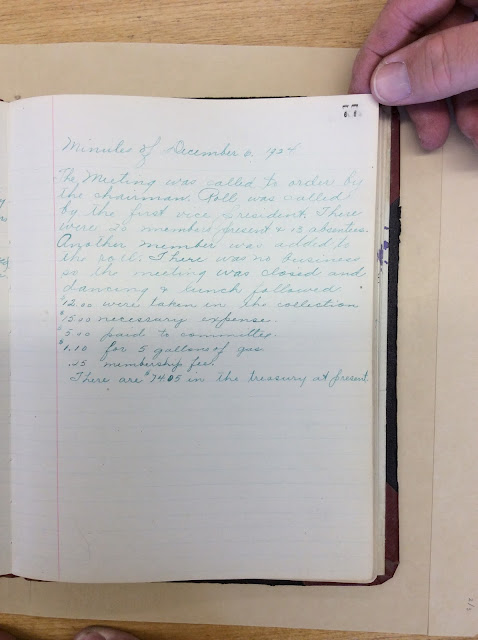 77
Minutes of December 6, 1924.
The Meeting was called to order by
the chairman. Roll was called
by the first vice president. There
were 20 members present & 13 absentees.
Another member was added to
the roll. There was no business
so the meeting was closed and
dancing & lunch followed
$12.00 were taken in the collection
$15.00 necessary expense.
$5.00 paid to committee.
$1.10 for 5 gallons of gas
.25 membership fee.
There are $74.05 in the treasury at present